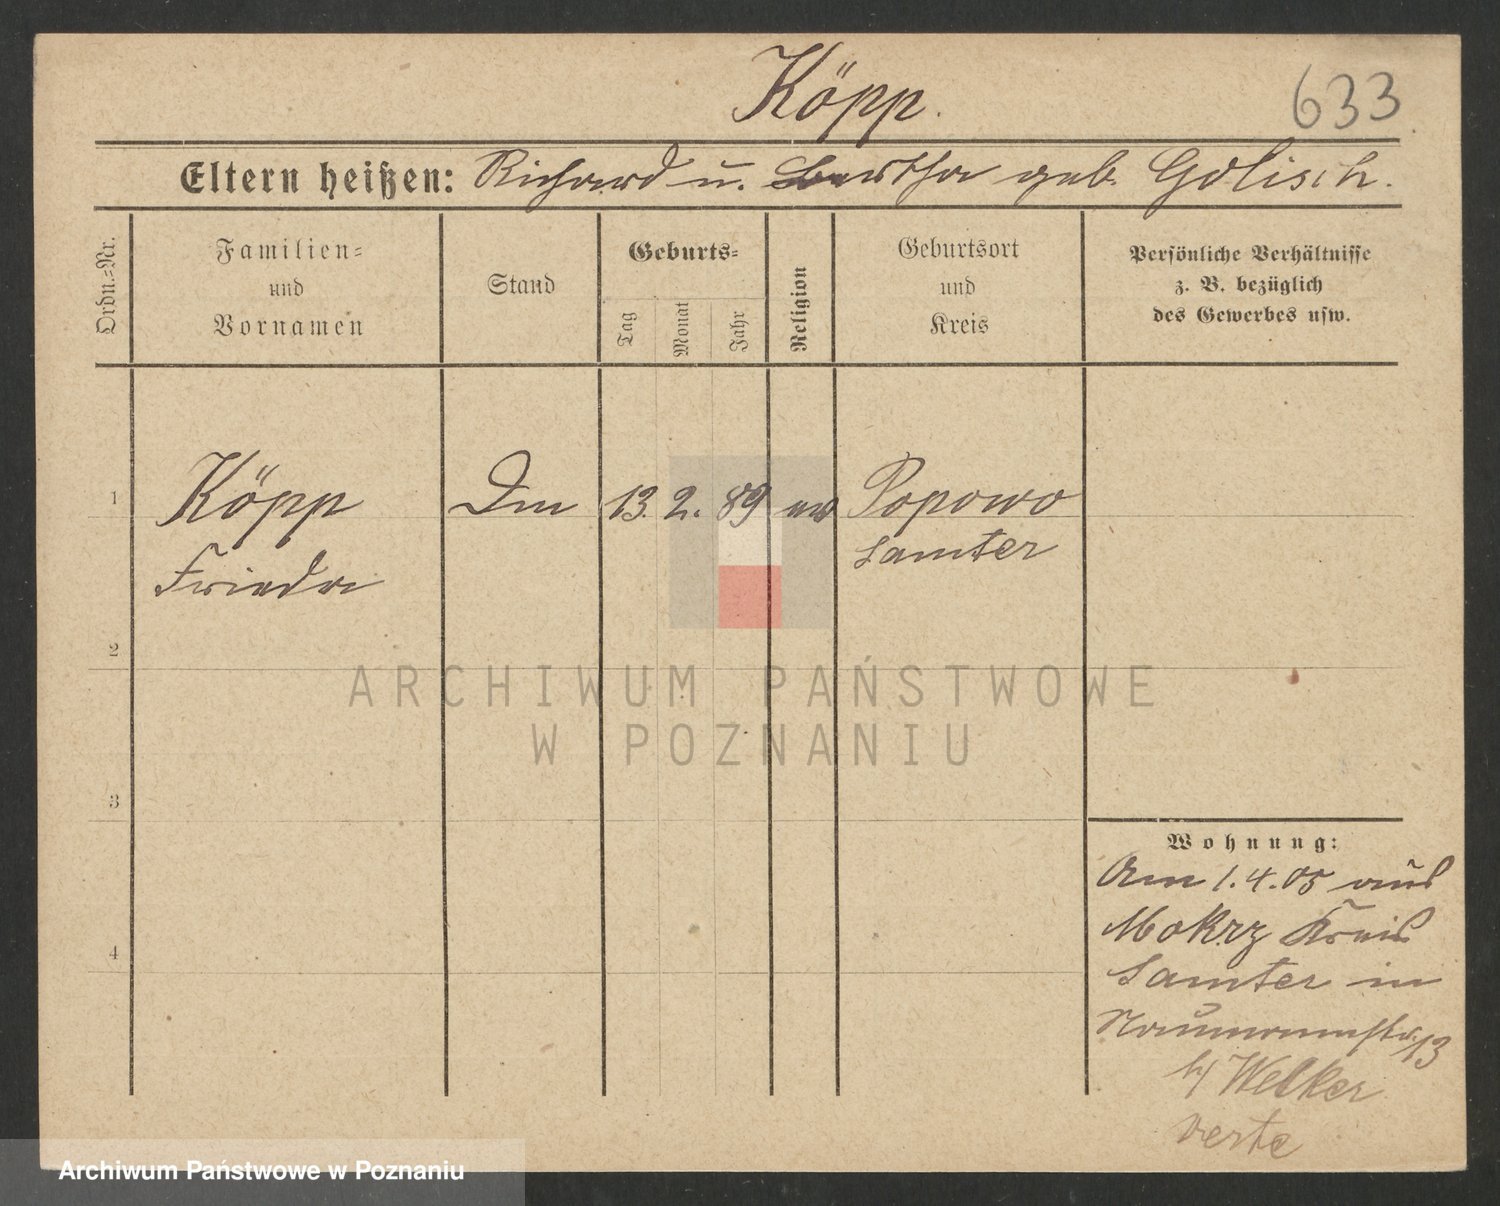 Köpp.
633
Eltern heißen: Richard u. Bertha geb. Golisch.
Ordn.-Nr.
Familien-
und
Vornamen
Stand
Geburts-
Tag
Monat
Jahr
Religion
Geburtsort
und
Kreis
Persönliche Verhältnisse
z. B. bezüglich
des Gewerbes usw.
1
Köpp 13. 2. 89 ev Popowo
Frieda Samter
2
ARCHIWUM PAŃSTWOWE
W POZNANIU
3
4
Wohnung:
Am 1.4.05 aus
Mokrz Kreis
Samter in
Naumannstr. 13
b/ Welker
verte
Archiwum Państwowe w Poznaniu